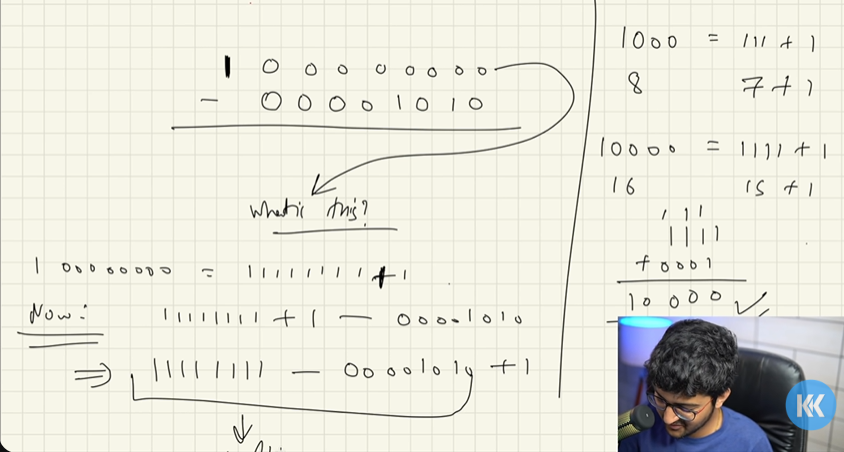 1 0 0 0 0 0 0 0 0
- 0 0 0 0 1 0 1 0
What is this?
1 00000000 = 11111111 + 1
Now: 11111111 + 1 - 00001010
=> 11111111 - 00001010 + 1
1000 = 111 + 1
8 7 + 1
10000 = 1111 + 1
16 15 + 1
1 1 1
1111
+ 0001
10000 ✓
KK